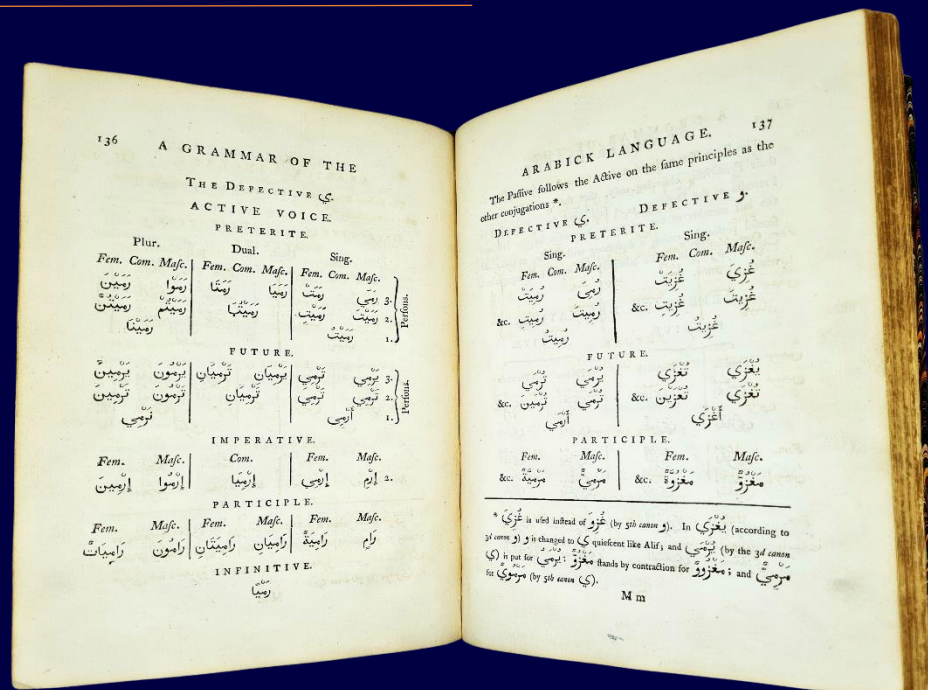 136
A GRAMMAR OF THE
THE DEFECTIVE ي.
ACTIVE VOICE.
PRETERITE.
Plur. Dual. Sing.
Fem. Com. Masc. Fem. Com. Masc. Fem. Com. Masc.
رَمَيْنَ رَمَوْا رَمَتَا رَمَيَا رَمَتْ رَمَي 3.
رَمَيْتُنَّ رَمَيْتُمْ رَمَيْتُمَا رَمَيْتِ رَمَيْتَ 2.
رَمَيْنَا رَمَيْتُ 1.
Persons.
FUTURE.
يَرْمِينَ يَرْمُونَ تَرْمِيَانِ يَرْمِيَانِ تَرْمِي يَرْمِي 3.
تَرْمِينَ تَرْمُونَ تَرْمِيَانِ تَرْمِي 2.
نَرْمِي أَرْمِي 1.
Persons.
IMPERATIVE.
Fem. Masc. Com. Fem. Masc.
إِرْمِينَ إِرْمُوا إِرْمِيَا إِرْمِي إِرْمِ 2.
PARTICIPLE.
Fem. Masc. Fem. Masc. Fem. Masc.
رَامِيَاتٌ رَامُونَ رَامِيَتَانِ رَامِيَانِ رَامِيَةٌ رَامٍ
INFINITIVE.
رَمْيًا
ARABICK LANGUAGE. 137
The Passive follows the Active on the same principles as the
other conjugations *.
DEFECTIVE ي. DEFECTIVE و.
PRETERITE.
Sing. Sing.
Fem. Com. Masc. Fem. Com. Masc.
رُمِيَتْ رُمِيَ غُزِيَتْ غُزِيَ
&c. رُمِيتِ رُمِيتَ &c. غُزِيتِ غُزِيتَ
رُمِيتُ غُزِيتُ
FUTURE.
تُرْمَي يُرْمَي تُغْزَي يُغْزَي
&c. تُرْمَيْنَ تُرْمَي &c. تُغْزَيْنَ تُغْزَي
أُرْمَي أُغْزَي
PARTICIPLE.
Fem. Masc. Fem. Masc.
&c. مَرْمِيَّةٌ مَرْمِيٌّ &c. مَغْزُوَّةٌ مَغْزُوٌّ
* غُزِيَ is used instead of غُزِوَ (by 5th canon و). In يُغْزَي (according to
3d canon و) و is changed to ي quiescent like Alif; and يُرْمَي (by the 3d canon
ي) is put for يُرْمَيُ: مَغْزُوٌّ stands by contraction for مَغْزُووٌ; and مَرْمِيٌّ
for مَرْمُويٌ (by 5th canon ي).
M m